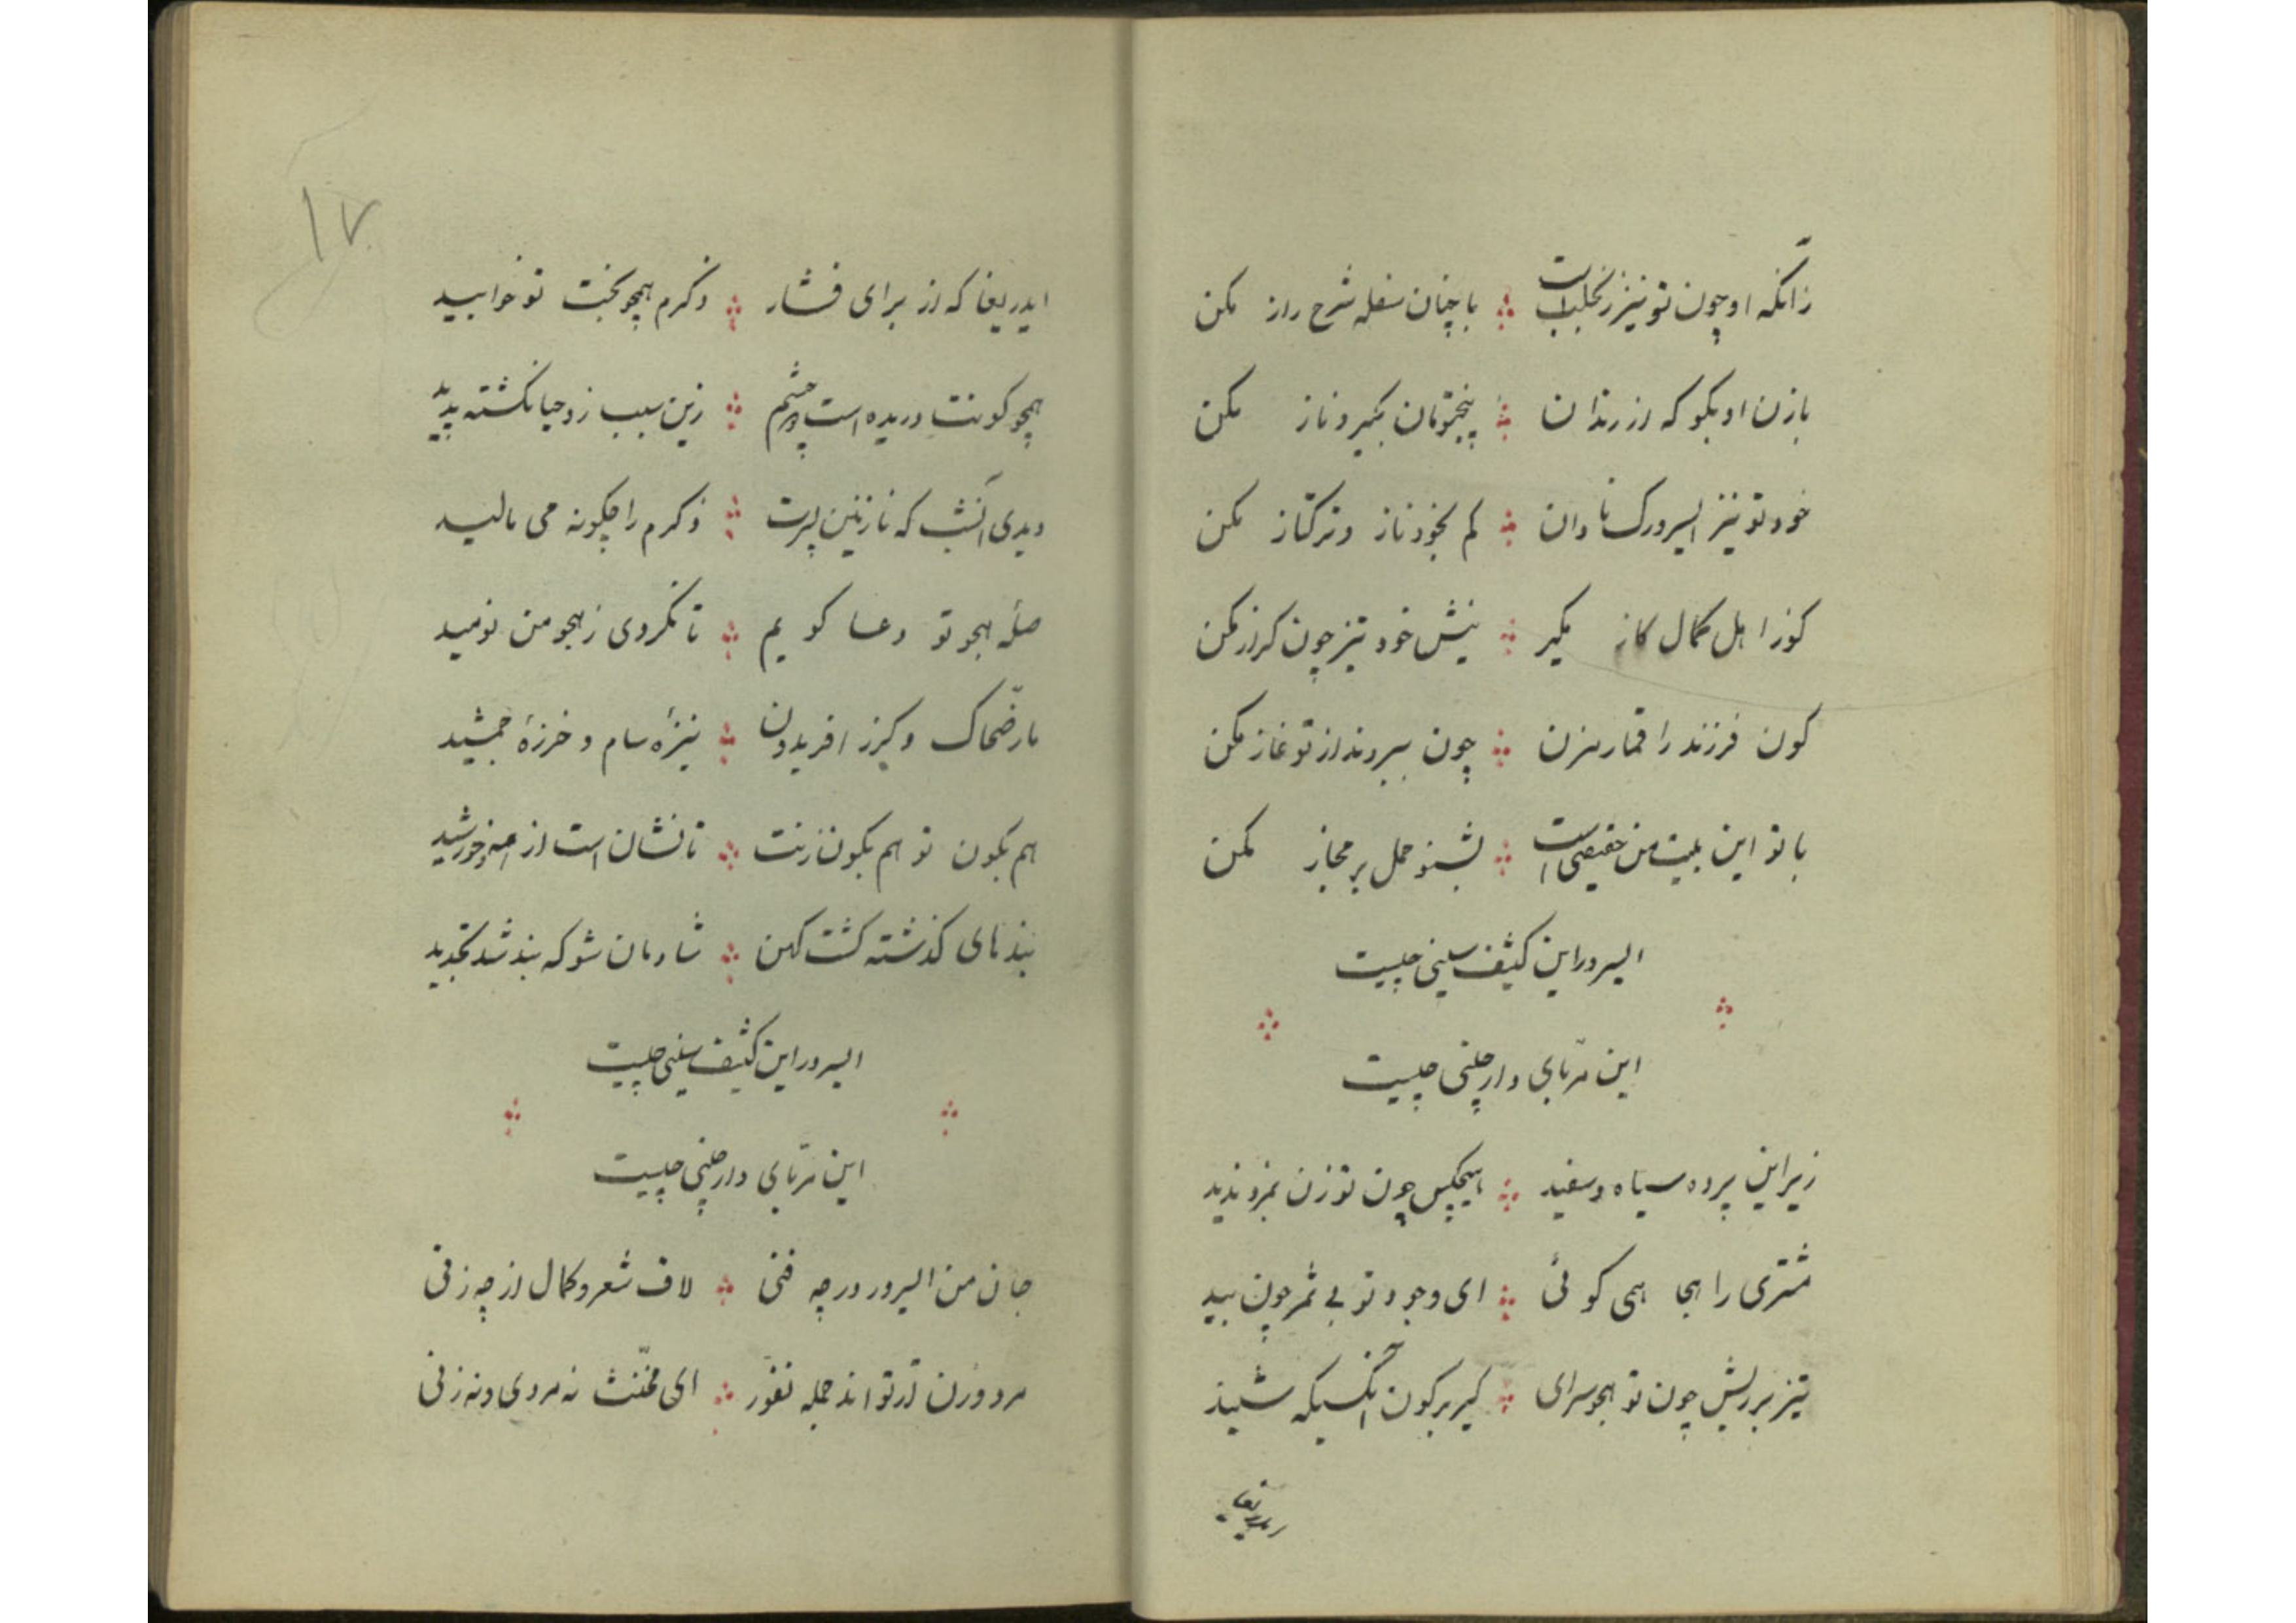 زانکه او چون تو نیز زنجلب است با چنان سفله شرح راز مکن
با زن او بگو که از رندان پنجتومان بگیر و ناز مکن
خود تو نیز ایسرورک نادان کم بخود ناز و ترکتاز مکن
کوز اهل کمال کاز مگیر نیش خود تیز چون کراز مکن
کون فرزند را قمار مزن چون ببردند از تو غاز مکن
با تو این بیت من حقیقی است بشنو حمل بر مجاز مکن
ایسرور این کثیف سینی چیست
این مربای دارچینی چیست
زیر این پرده سیاه و سفید هیچکس چون تو زن بمزد ندید
مشتری را هجا همی کوئی ای وجود تو بی ثمر چون بید
تیز بر ریش چون تو هجو سرای کیر بر کون آنکسیکه شنید
ایدریغا که از برای فشار ذکرم همچو بخت تو خوابید
همچو کونت دریده است چشم زین سبب زو حیا نکشته پدید
دیدی آنشب که نازنین پسرت ذکرم را چکونه می مالید
صلهٔ هجو تو دعا کویم تا نکردی ز هجو من نومید
مار ضحاک و کرز افریدون نیزهٔ سام و خرزهٔ جمشید
هم بکون تو هم بکون زنت تا نشان است از مه و خورشید
بند های کذشته کشت کهن شادمان شو که بند شد تجدید
ایسرور این کثیف سینی چیست
این مربای دارچینی چیست
جان من ایسرور در چه فنی لاف شعر و کمال از چه زنی
مرد و زن از تواند جمله نفور ای مخنث نه مردی و نه زنی
۱۷